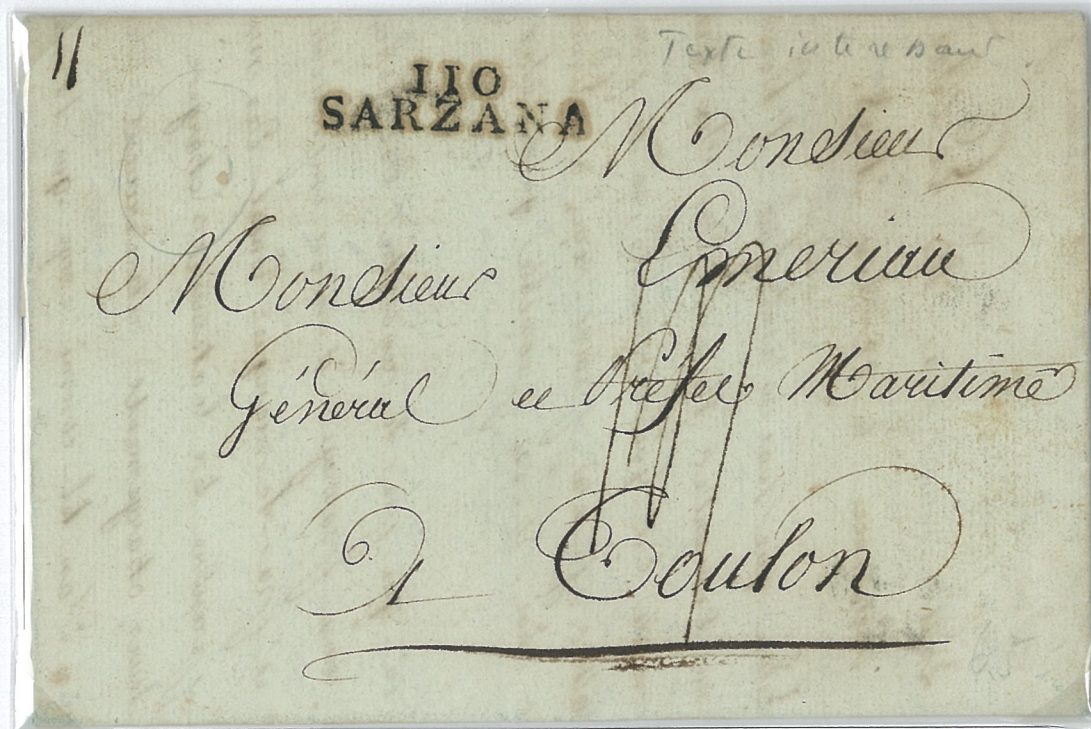 Texte interessant
110
SARZANA
Monsieur
Emeriau
Monsieur
Général et Préfet Maritime
A Toulon